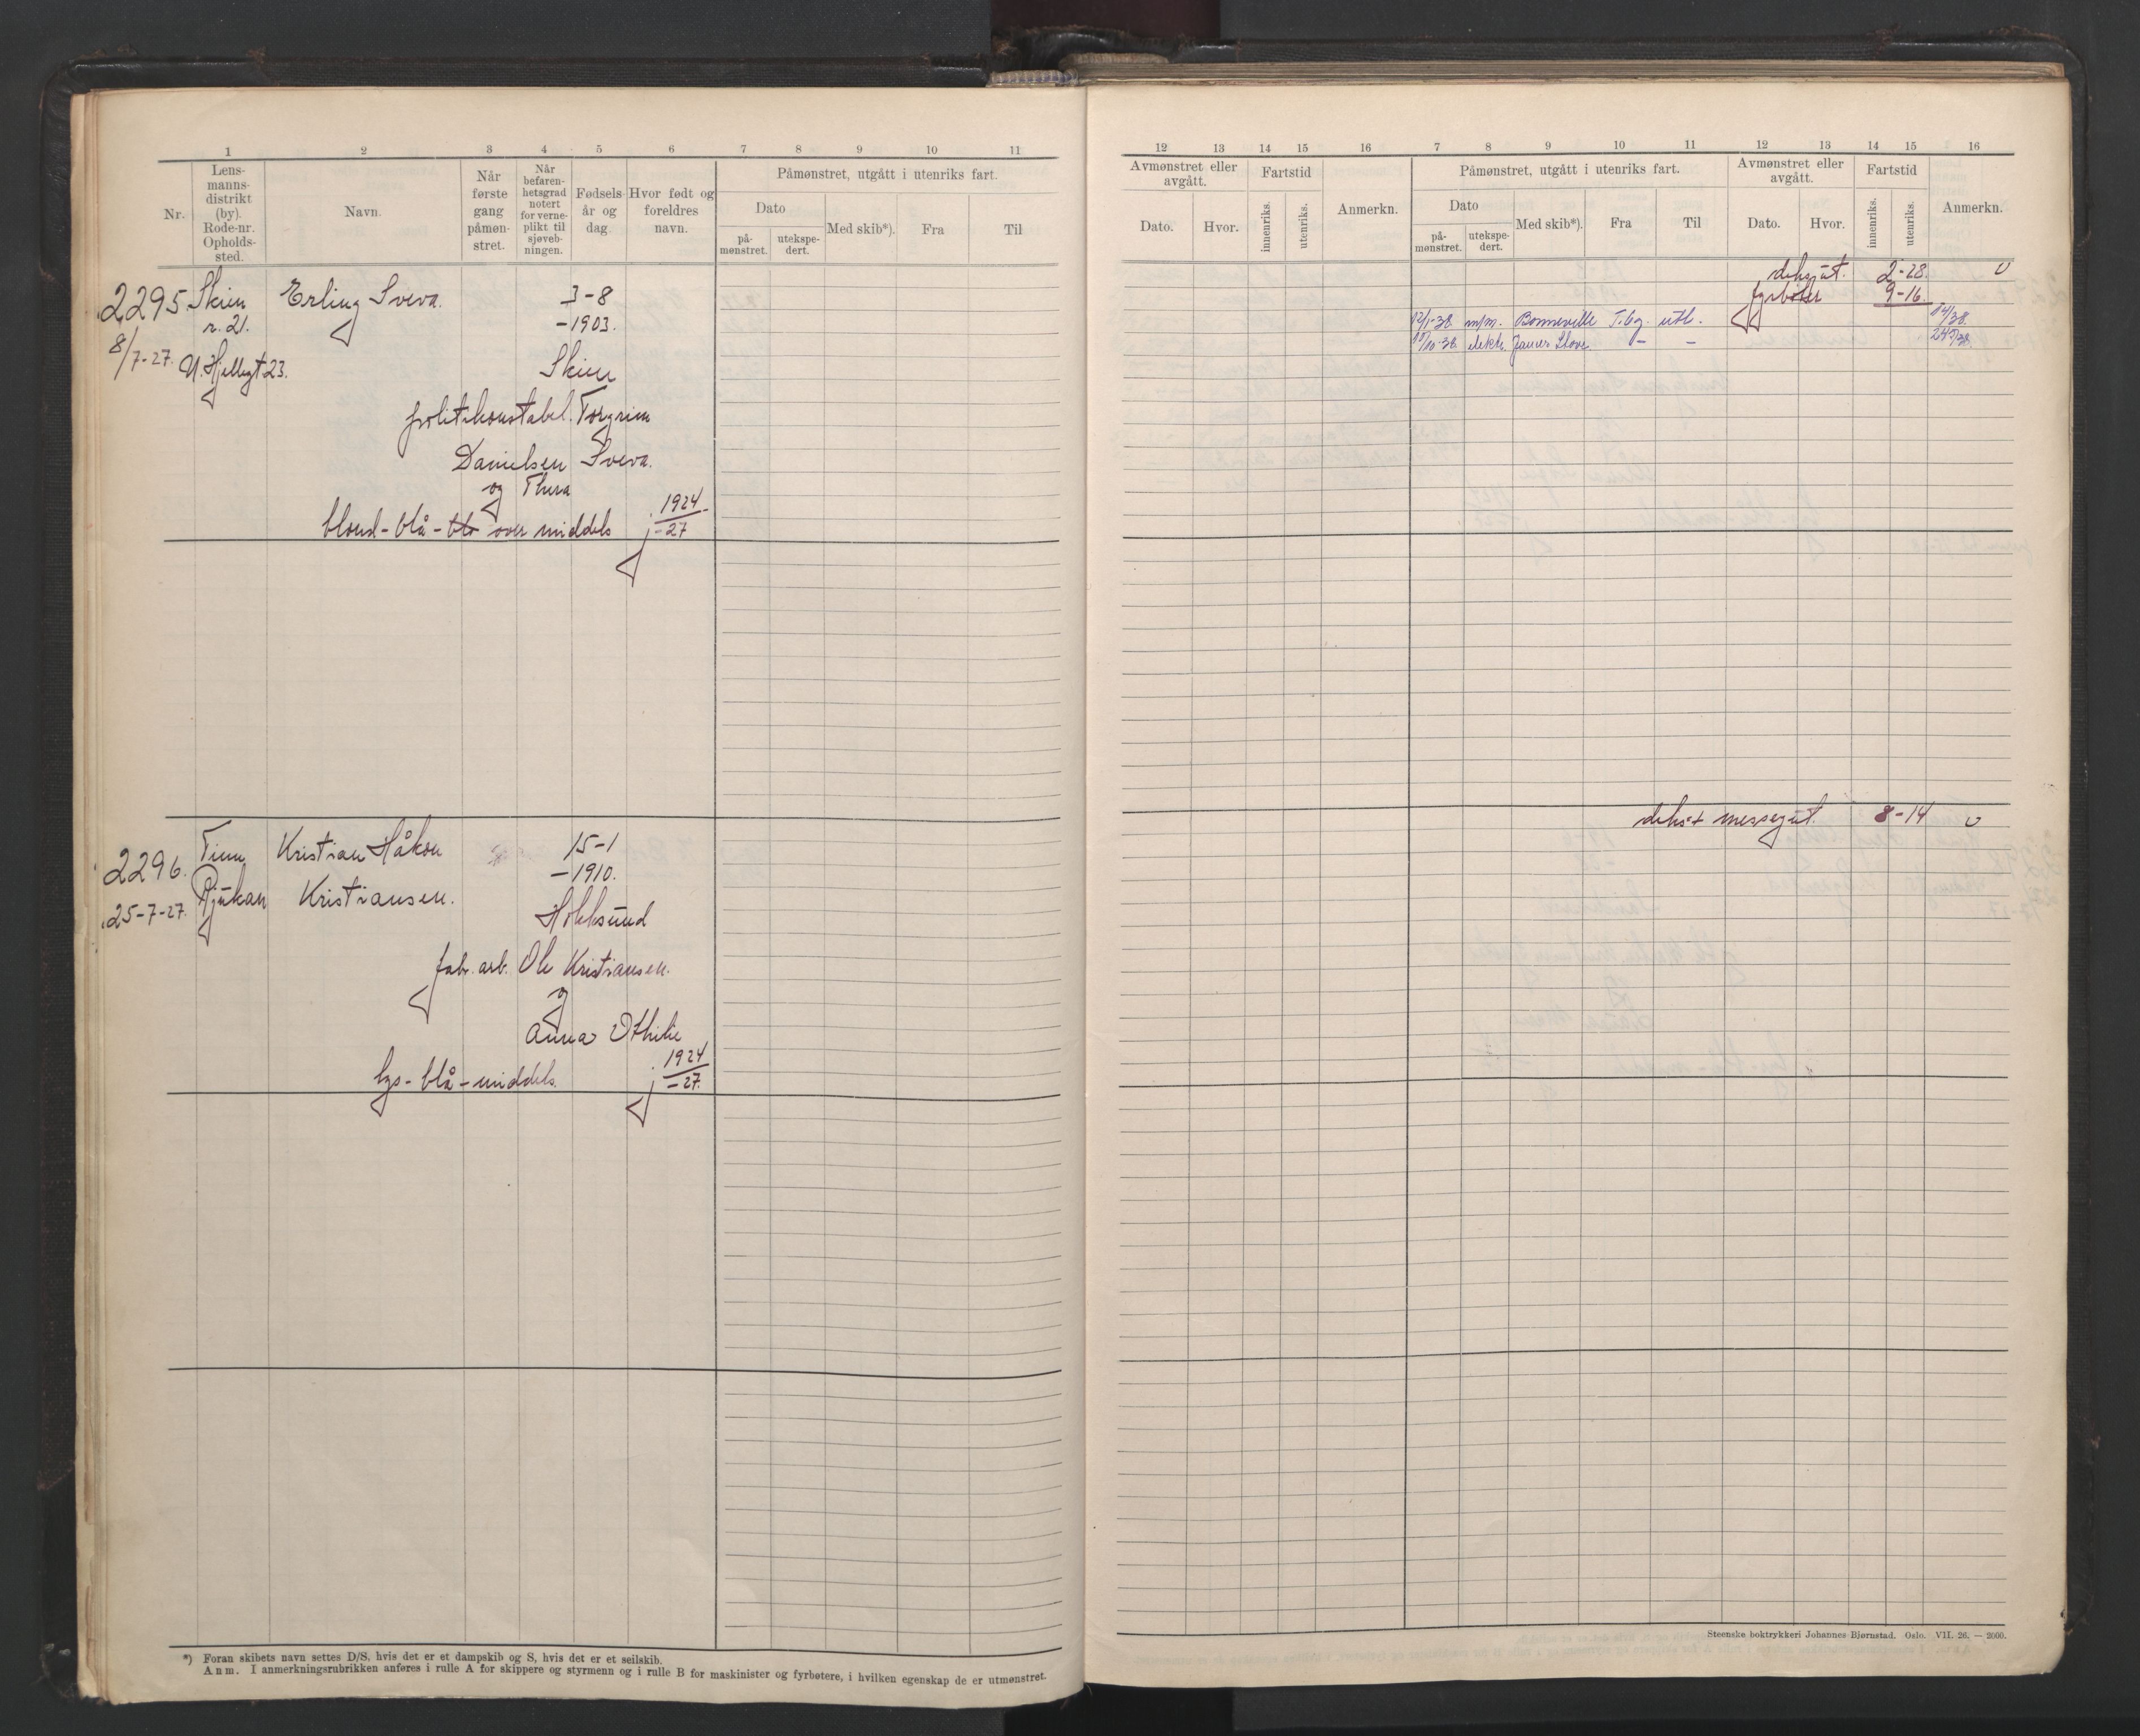 1 2 3 4 5 6 7 8 9 10 11
Nr.
Lens-
manns-
distrikt
(by).
Rode-nr.
Opholds-
sted.
Navn.
Når
første
gang
påmøn-
stret.
Når
befaren-
hetsgrad
notert
for verne-
plikt til
sjøveb-
ningen.
Fødsels-
år og
dag.
Hvor født og
foreldres
navn.
Påmønstret, utgått i utenriks fart.
Dato
på-
mønstret.
utekspe-
dert.
Med skib*).
Fra
Til
2295 Skien Erling Sveva. 3-8
r. 21. -1903.
8/7-27. N. Hjellegt 23. Skien
politikonstabel. Torgrim
Danielsen Sveva.
og Thora
1924
blond - blå - over middels j. -27
2296. Tinn Kristian Håkon 15-1
Rjukan Kristiansen. -1910.
25-7-27. Hokksund
fab. arb. Ole Kristiansen.
og
Anna Othilie
1924
lys - blå - middels. j. -27.
*) Foran skibets navn settes D/S, hvis det er et dampskib og S, hvis det er et seilskib.
Anm. I anmerkningsrubrikken anføres i rulle A for skippere og styrmenn og i rulle B for maskinister og fyrbøtere, i hvilken egenskap de er utmønstret.
12 13 14 15 16 7 8 9 10 11 12 13 14 15 16
Avmønstret eller
avgått.
Dato.
Hvor.
Fartstid
innenriks.
utenriks.
Anmerkn.
Påmønstret, utgått i utenriks fart.
Dato
på-
mønstret.
utekspe-
dert.
Med skib*).
Fra
Til
Avmønstret eller
avgått.
Dato.
Hvor.
Fartstid
innenriks.
utenriks.
Anmerkn.
deksgut. 2-28. U
fyrbøter 9-16.
12/1-38 m/m. Bonneville T.bg. utl.
/10-38 elektr. - -
deks + messegut. 8-14 U
Steenske boktrykkeri Johannes Bjørnstad. Oslo. VII. 26. — 2000.